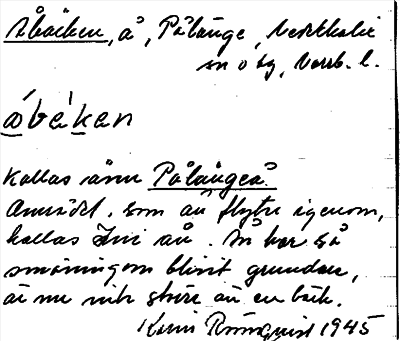 Åbäcken, å, Pålänge, Nederkalix
sn o tg, Norrb. l.
åbẹ́kan
Kallas även Pålängeå.
Området, som ån flyter igenom,
kallas Ini ån. Ån har så
småningom blivit grundare,
är nu inte större än en bäck.
Karin Rönnquist 1945